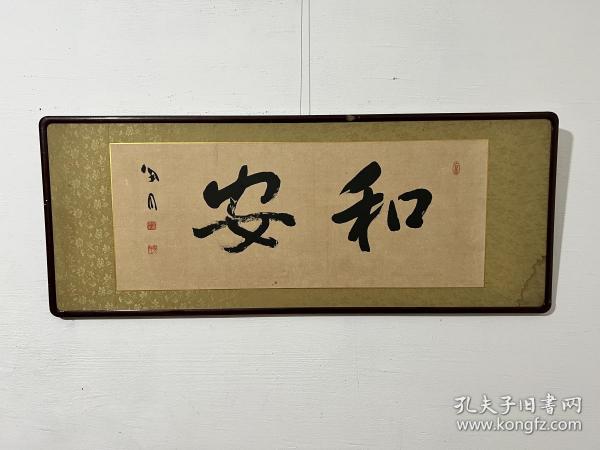 和安
孔夫子旧书网
www.kongfz.com